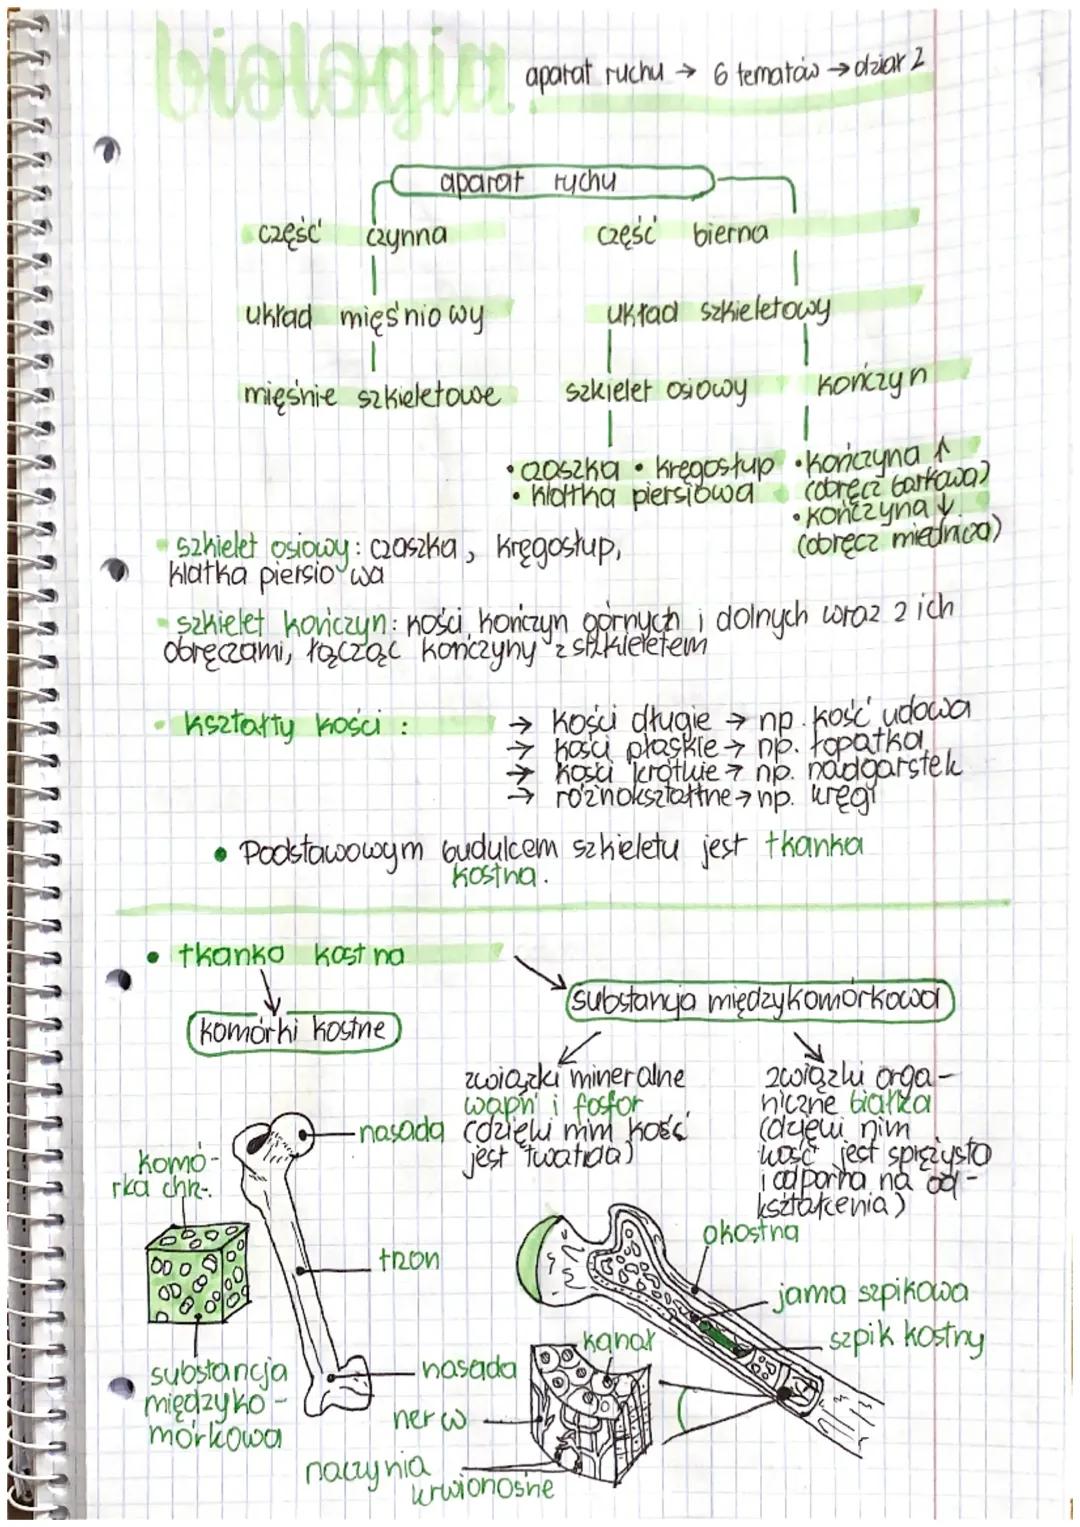 biologia
aparat ruchu → 6 tematów → dział 2
aparat ruchu
część czynna
część bierna
układ mięśniowy
układ szkieletowy
mięśnie szkieletowe
szkielet osiowy
kończyn
• czaszka • kręgosłup
• klatka piersiowa
• kończyna ↑
(obręcz barkowa)
• kończyna ↓
(obręcz miednica)
- szkielet osiowy: czaszka, kręgosłup,
klatka piersiowa
- szkielet kończyn: kości kończyn górnych i dolnych wraz z ich
obręczami, łącząc kończyny z szkieletem
• kształty kości :
→ kości długie → np. kość udowa
→ kości płaskie → np. łopatka
→ kości krótkie → np. nadgarstek
→ różnokształtne → np. kręgi
• Podstawowym budulcem szkieletu jest tkanka
kostna.
• tkanka kostna
substancja międzykomórkowa
komórki kostne
związki mineralne
wapń i fosfor
(dzięki nim kość
jest twarda)
związki orga-
niczne białka
(dzięki nim
kość jest sprężysta
i odporna na od-
kształcenia)
nasada
komó-
rka chrz.
trzon
okostna
jama szpikowa
szpik kostny
kanał
substancja
międzyko-
mórkowa
nasada
nerw
naczynia
krwionośne